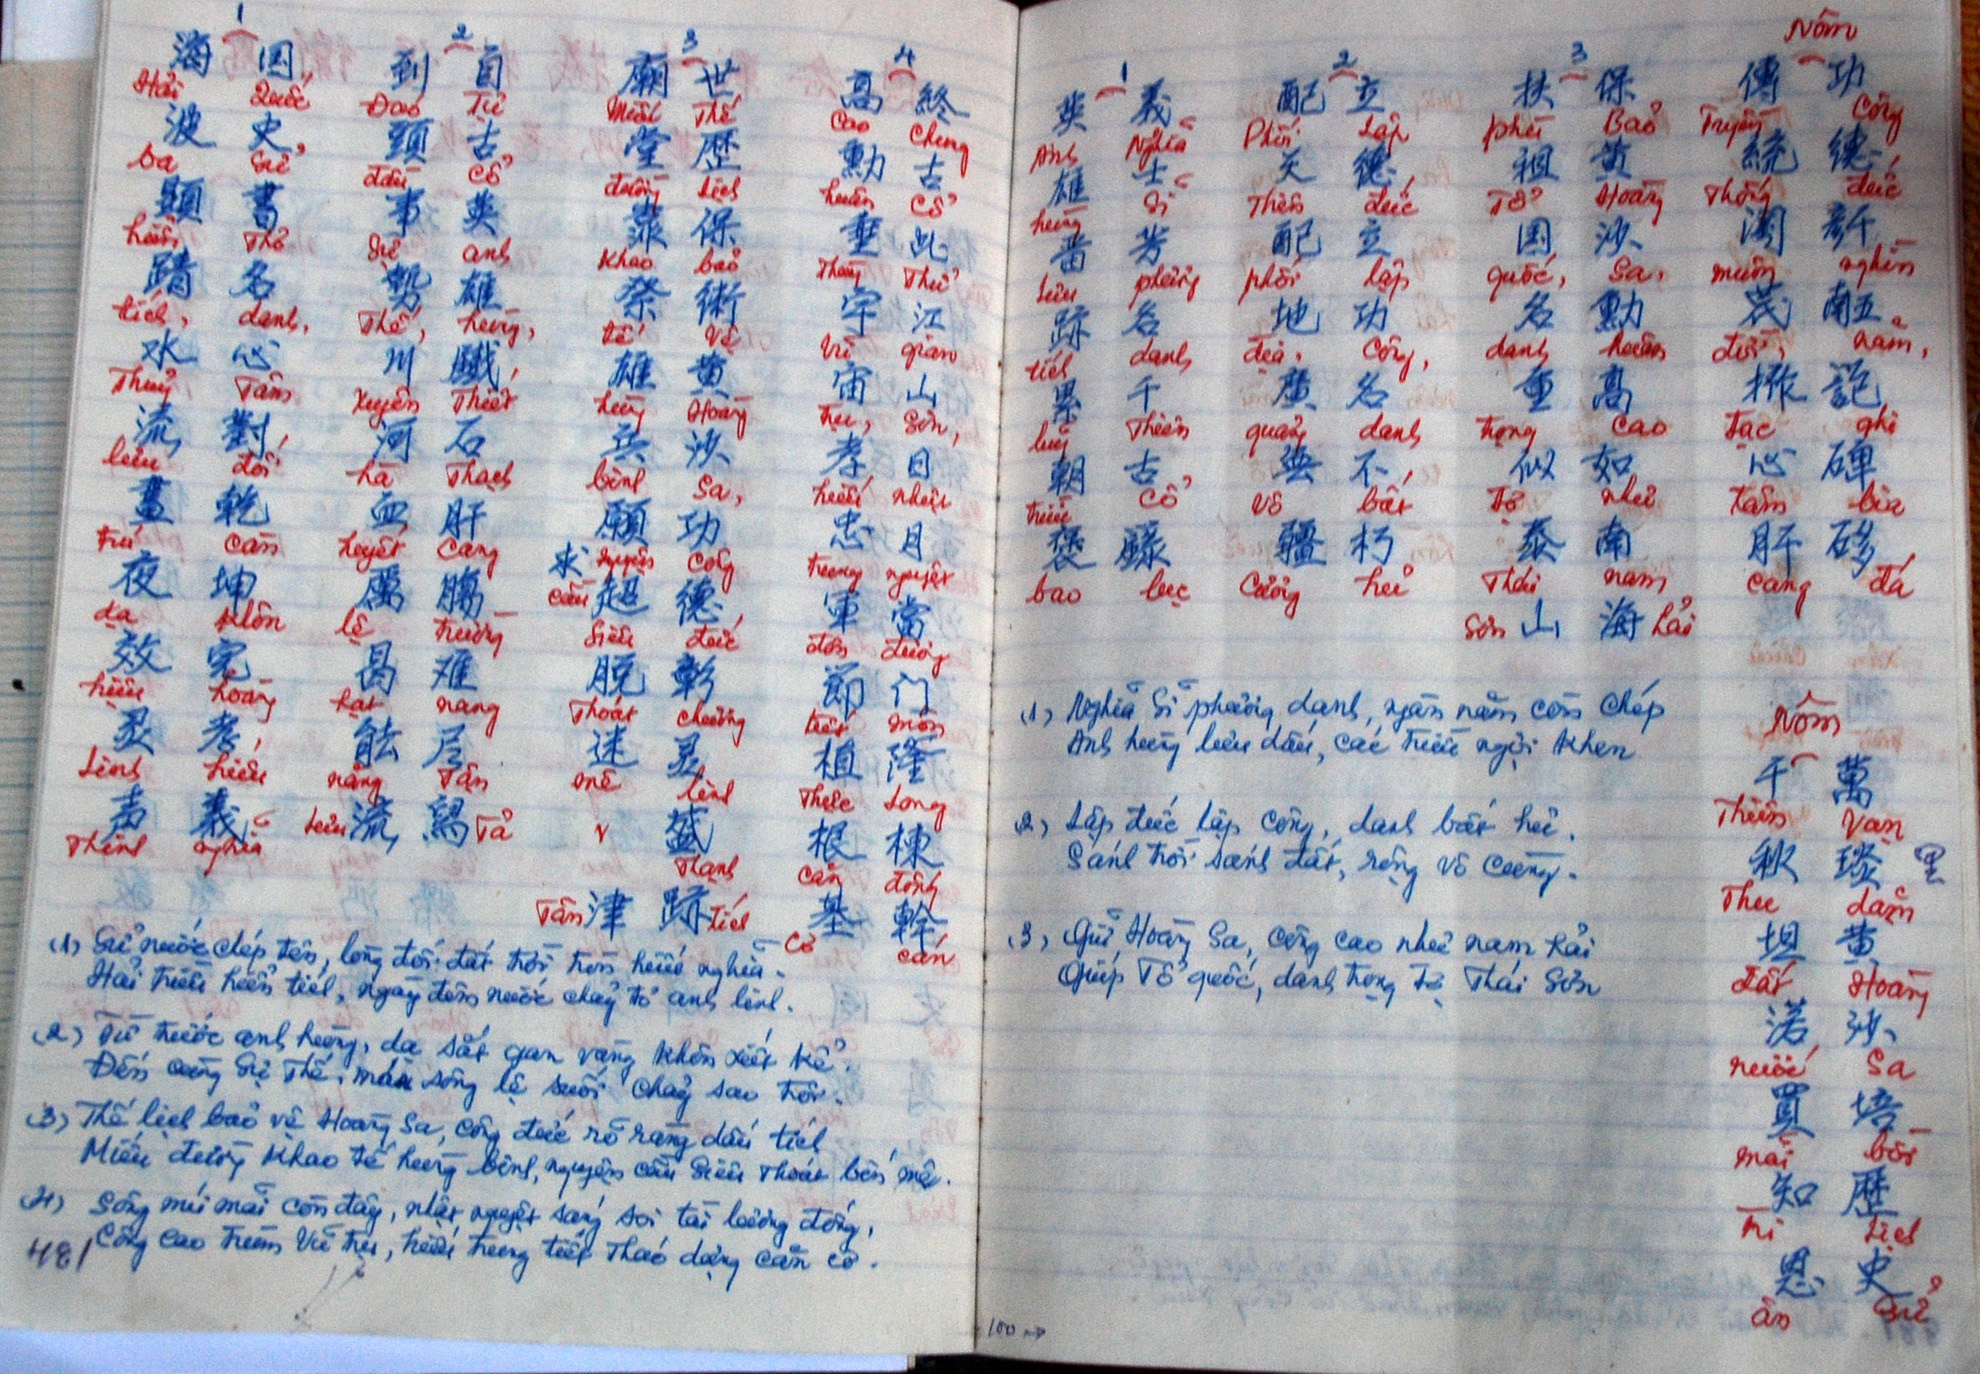 1
海 国
Hải Quốc
波 史
ba Sử
顕 書
hiển Thơ
蹟 名
tích, danh,
水 心
Thuỷ Tâm
流 對
lưu đối
晝 乾
trú càn
夜 坤
dạ khôn
效 完
hiệu hoàn
灵 孝
Linh hiếu
声 義
Thinh nghĩa
2
到 自
Đáo Tự
頭 古
đầu cổ
事 英
Sự anh
勢 雄
Thế, hùng,
川 鐵
Xuyên Thiết
河 石
hà Thạch
血 肝
huyết can
厲 腸
lệ trường
曷 难
hạt nang
能 尽
năng Tận
流 寫
lưu Tả
3
廟 世
Miếu Thế
堂 歷
đường Lịch
犒 保
Khao bảo
祭 衛
tế Vệ
雄 黄
hùng Hoàng
兵 沙
binh Sa,
願 功
nguyện Công
求
cầu
超 德
Siêu đức
脱 彰
Thoát chương
迷 灵
mê linh
盛
Thạnh
津 跡
Tân tích
4
高 終
Cao Chung
勳 古
huân Cổ
垂 此
Thùy Thử
宇 江
Vũ gian
宙 山
trụ, Sơn,
孝 日
hiếu nhật
忠 月
trung nguyệt
軍 當
đơn đương
節 门
tiết môn
植 隆
Thực Long
根 棟
căn đống
基 幹
Cơ cán
(1) Sử nước chép tên, lòng đối đất trời tròn hiếu nghĩa.
Hải triều hiển tích, ngày đêm nước chảy tỏ anh linh.
(2) Từ trước anh hùng, da sắt gan vàng khôn xiết kể.
Đến cùng Sự Thế, máu sông lệ suối chảy sao trôi.
(3) Thế lịch bảo vệ Hoàng Sa, công đức rõ ràng dấu tích
Miếu đường khao tế hùng binh, nguyện cầu siêu thoát bến mê.
(4) Sông núi mãi còn đây, nhật nguyệt sáng soi tài lương đống,
Công cao trùm Vũ trụ, hiếu trung tiết tháo dựng căn cơ.
481
1
英 義
Anh Nghĩa
雄 士
hùng Sĩ
畱 芳
Lưu phương
跡 名
tích danh
累 千
luỹ Thiên
朝 古
triều Cổ
褒 錄
bao lục
2
配 立
Phối Lập
天 德
Thiên đức
配 立
phối lập
地 功
địa, Công,
廣 名
quảng danh
無 不
Vô bất
疆 朽
Cương hủ
3
扶 保
phù Bảo
祖 黄
Tổ Hoàng
国 沙
quốc, Sa,
名 勳
danh huân
重 高
trọng cao
似 如
tợ như
泰 南
Thái nam
山 海
Sơn hải
Nôm
傳 功
Truyền Công
統 德
Thống đức
muôn nghìn
đời, năm,
tạc ghi
心 碑
tâm bia
肝
cang đá
(1) Nghĩa Sĩ phương danh, ngàn năm còn chép
Anh hùng lưu dấu, các triều ngợi khen
(2) Lập đức lập công, danh bất hủ.
Sánh trời sánh đất, rộng vô cương.
(3) Giữ Hoàng Sa, công cao như nam hải
Giúp Tổ quốc, danh trọng tợ Thái Sơn
Nôm
千 萬
Thiên Vạn
秋
Thu dặm
里
坦 黄
đất Hoàng
渃 沙
nước Sa
買 培
mãi bồi
知 歷
Tri Lịch
恩 史
ân Sử
100 →